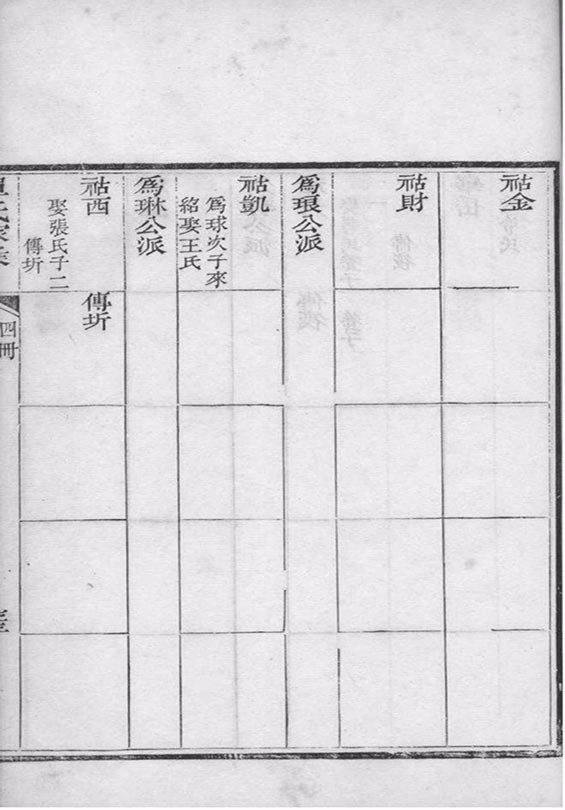 祜金
祜財
為琅公派
祜凱
為球次子來
紹娶王氏
為琳公派
祜西
娶張氏子二
傳圻
傳圻
氏家乘
四冊